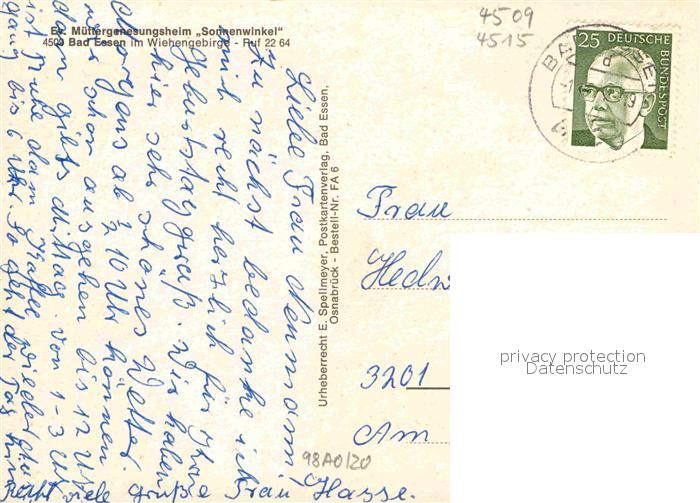 Ev. Müttergenesungsheim „Sonnenwinkel"
4509 Bad Essen im Wiehengebirge - Ruf 22 64
4509
4515
25 DEUTSCHE
BUNDESPOST
Liebe Frau Neumann,
Zu nächst bedanke ich
mich recht herzlich für Ihre
Geburtstaggrüß. Wir haben
hier sehr schönes Wetter.
Morgens ab ½ 10 Uhr können
wir schon ausgehen bis 12 Uhr
dann gibts Mittag. von 1-3 Uhr
ist Ruhe dann Kaffee wieder
bis 6 Uhr. So geht der Tag
viele Grüße Frau Hasse.
Urheberrecht E. Spellmeyer, Postkartenverlag, Bad Essen,
Osnabrück - Bestell-Nr. FA 6
Frau
Hedw
3201
Am
privacy protection
Datenschutz
98A0/20